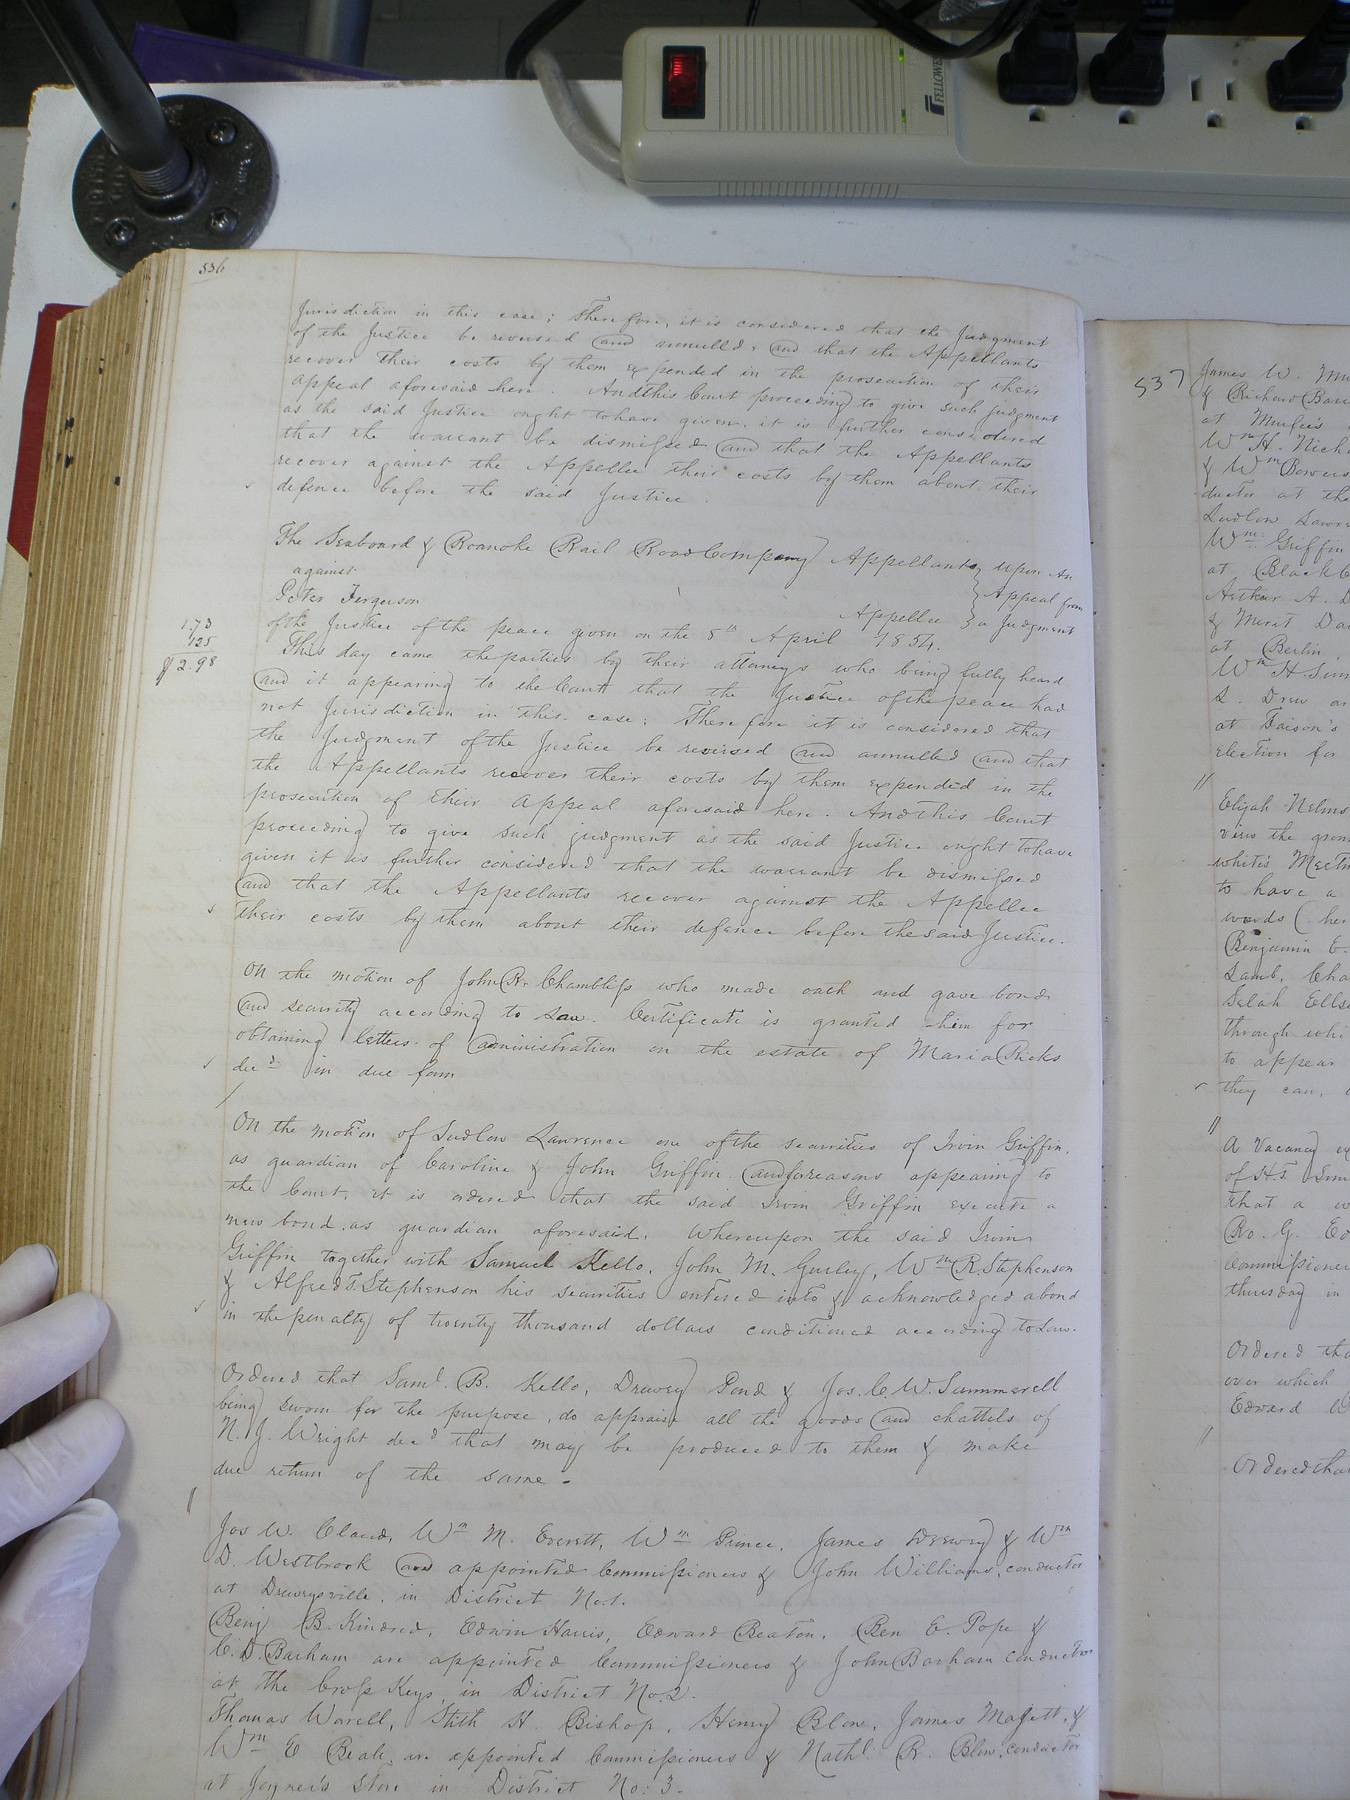 FELLOWES
536
Jurisdiction in this case; Therefore, it is considered that the Judgment
of the Justice be reversed and annulled, and that the Appellants
recover their costs by them expended in the prosecution of their
appeal aforesaid here. And this Court proceeding to give such judgment
as the said Justice ought to have given, it is further considered
that the warrant be dismissed and that the Appellants
recover against the Appellee their costs by them about their
defence before the said Justice.
The Seaboard & Roanoke Rail Road Company Appellants upon An
against Appeal from
Peter Ferguson Appellee a Judgment
of the Justice of the peace given on the 8th April 1854.
1.73
1.25
$2.98
This day came the parties by their attorneys who being fully heard
and it appearing to the Court that the Justice of the peace had
not Jurisdiction in this case; Therefore it is considered that
the Judgment of the Justice be reversed and annulled and that
the Appellants recover their costs by them expended in the
prosecution of their appeal aforesaid here. And this Court
proceeding to give such judgment as the said Justice ought to have
given it is further considered that the warrant be dismissed
and that the Appellants recover against the Appellee
their costs by them about their defence before the said Justice.
On the motion of John R. Chambliss who made oath and gave bond
and security according to Law. Certificate is granted him for
obtaining letters of administration on the estate of Maria Ricks
decd in due form
On the motion of Ludlow Lawrence one of the securities of Irvin Griffin,
as guardian of Caroline & John Griffin and for reasons appearing to
the Court, it is ordered that the said Irvin Griffin execute a
new bond as guardian aforesaid. Whereupon the said Irvin
Griffin together with Samuel Kello, John M. Gurley, Wm R. Stephenson
& Alfred T. Stephenson his securities entered into & acknowledged a bond
in the penalty of twenty thousand dollars conditioned according to Law.
Ordered that Saml. B. Kello, Drewry Pond & Jos. C. W. Summerell
being sworn for the purpose, do appraise all the goods and chattels of
N. J. Wright decd that may be produced to them & make
due return of the same -
Jos W. Claud, Wm M. Everett, Wm Prince, James Drewry & Wm
D. Westbrook are appointed Commissioners & John Williams, conductor
at Drewrysville, in District No. 1.
Benj B. Kindred, Edwin Harris, Edward Beaton, Ben E. Pope &
C. D. Barham are appointed Commissioners & John Barham conductor
at the Cross Keys, in District No. 2.
Thomas Warell, Stith H. Bishop, Henry Blow, James Magett, &
Wm E Beale, are appointed Commissioners & Nathl. R. Blow, conductor
at Joyner's Store in District No: 3.
537
James W.
& Richard
at Murfee's
Wm H.
& Wm Bowers
ductor at the
Ludlow Lawre
Wm Griffin
at Black
Arthur A.
&
at Berlin
Wm H
S. Drew
at Faison's
election for
Elijah Nelms
the
white's
to have a
words (her
Benjamin E.
Lamb, Cha
through whi
to appear
they can,
A Vacancy
of H. T.
that a
Ro. G.
Commissioner
thursday in
Ordered tha
over which
Edward W
Ordered tha